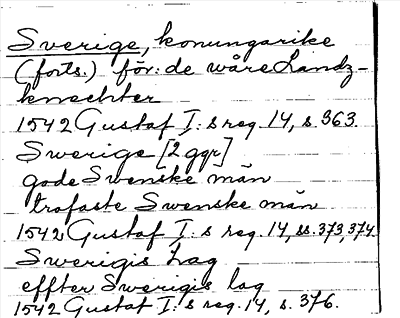 Sverige, konungarike
(forts.) för: de wåre Landz-
knechter
1542 Gustaf I:s reg. 14, s. 363.
Swerige [2 ggr]
gode Swenske män
trofaste Swenske män
1542 Gustaf I:s reg. 14, ss. 373, 374.
Swerigis Lag
effter Swerigis lag
1542 Gustaf I:s reg. 14, s. 376.